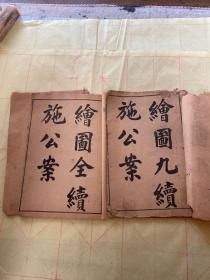 繪圖九續
施公案
繪圖全續
施公案